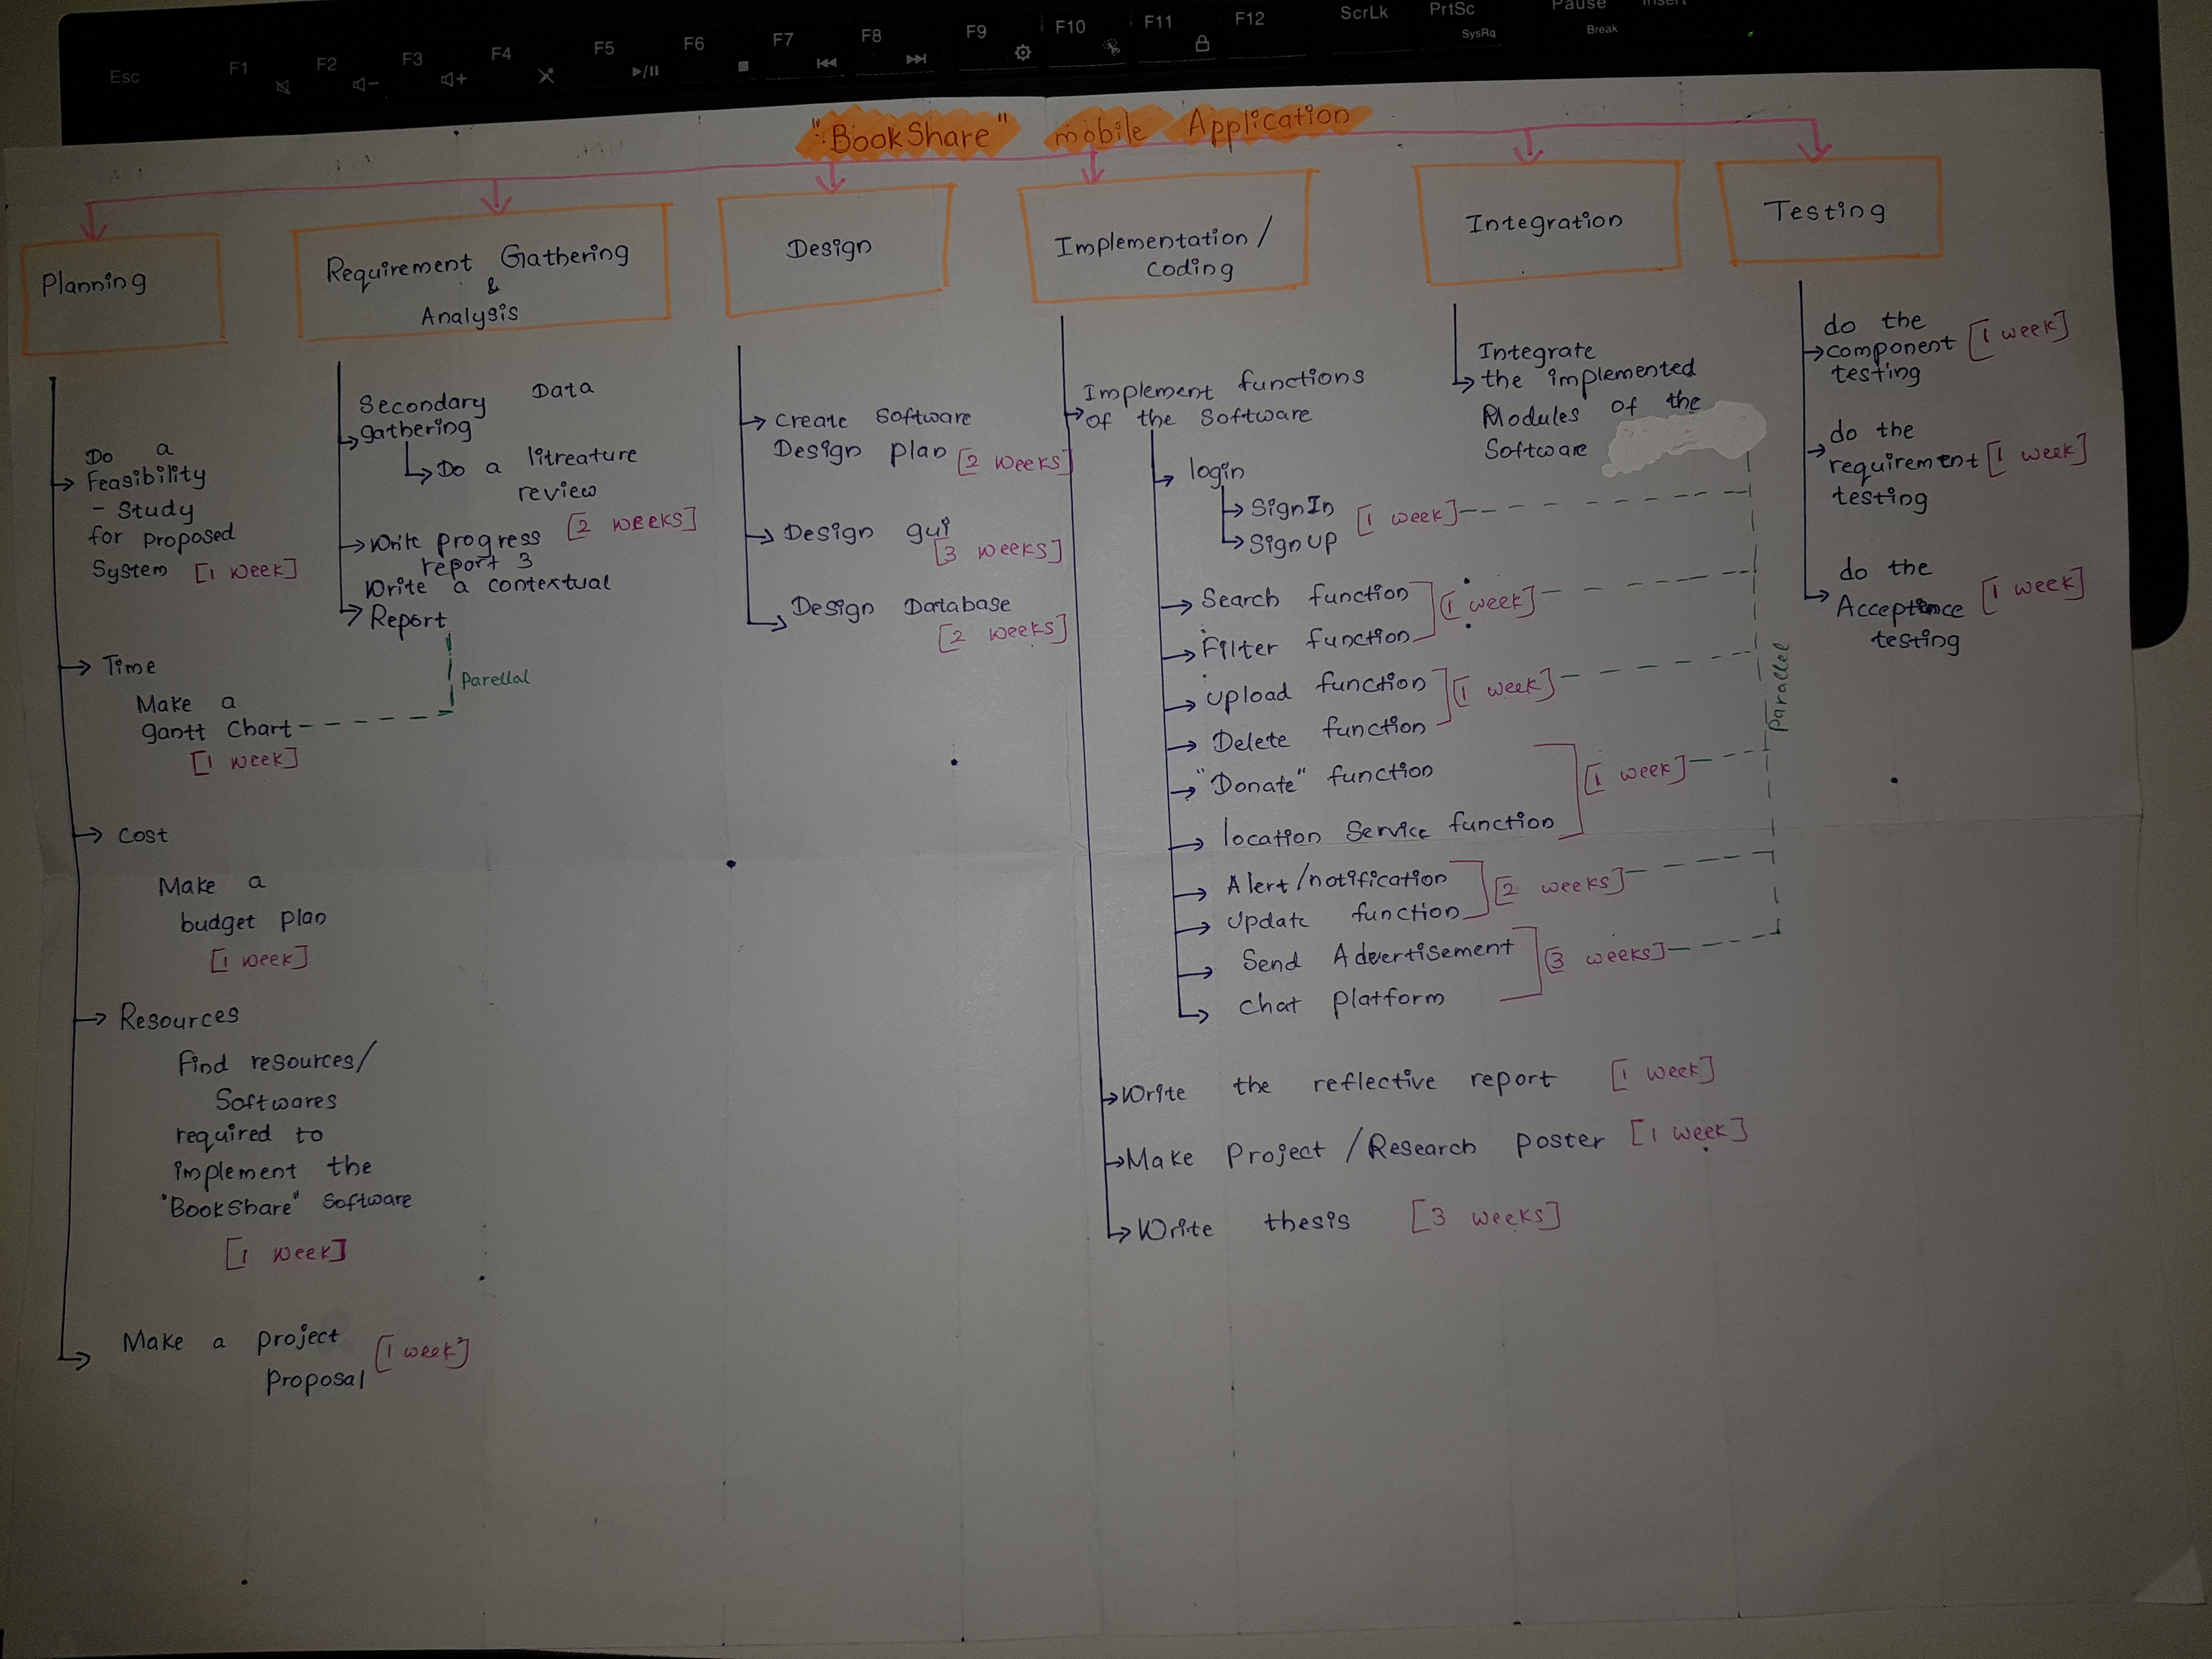 "BookShare" mobile Application
Planning
Do a
Feasibility
- Study
for proposed
System [1 week]
Time
Make a
gantt chart
[1 week]
Cost
Make a
budget plan
[1 week]
Resources
Find resources/
Softwares
required to
implement the
"BookShare" Software
[1 week]
Make a project
proposal [1 week]
Requirement Gathering
&
Analysis
Secondary Data
gathering
Do a litreature
review
Write progress [2 weeks]
report 3
Write a contextual
Report
Parellal
Design
create Software
Design plan [2 weeks]
Design gui
[3 weeks]
Design Database
[2 weeks]
Implementation/
Coding
Implement functions
of the Software
login
SignIn
SignUp [1 week]
Search function
Filter function
[1 week]
Upload function
Delete function
[1 week]
"Donate" function
location Service function
[1 week]
Alert/notification
Update function
[2 weeks]
Send Advertisement
chat platform
[3 weeks]
Parallel
Write the reflective report [1 week]
Make Project/Research poster [1 week]
Write thesis [3 weeks]
Integration
Integrate
the implemented
Modules of the
Software
Testing
do the
component [1 week]
testing
do the
requirement [1 week]
testing
do the
Acceptance [1 week]
testing
Esc
F1
F2
F3
F4
F5
F6
F7
F8
F9
F10
F11
F12
ScrLk
PrtSc
SysRq
Pause
Break